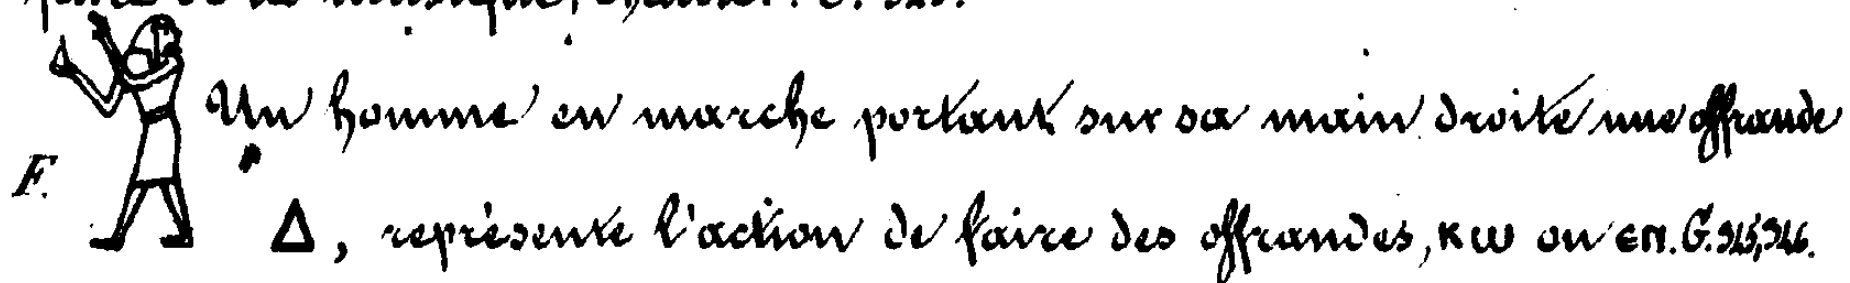 Un homme en marche portant sur sa main droite une offrande
F.
Δ, représente l'action de faire des offrandes, ⲕⲱ ou ⲉⲛ. G.